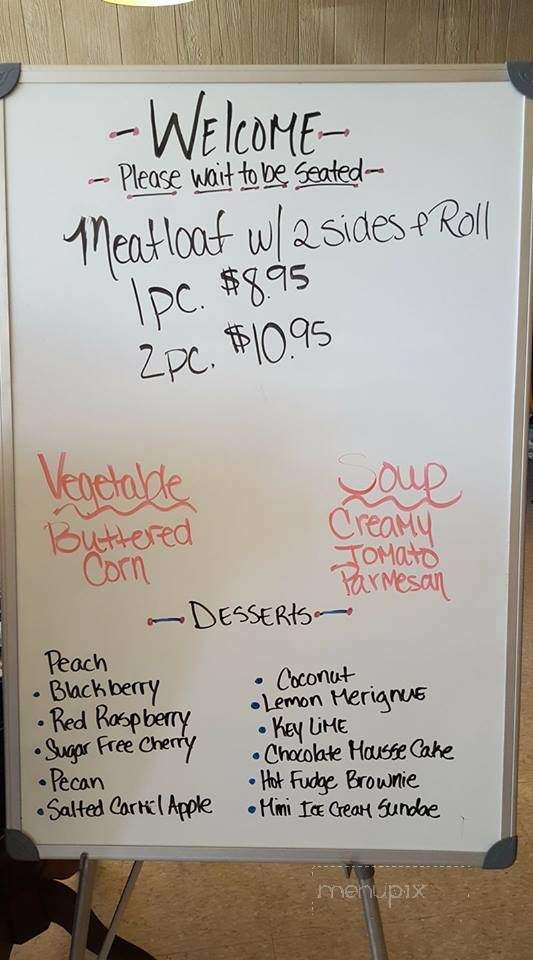 - WELCOME -
- Please wait to be Seated -
Meatloaf w/ 2 sides + Roll
1 pc. $8.95
2 pc. $10.95
Vegetable
Buttered
Corn
Soup
Creamy
Tomato
Parmesan
- DESSERTS -
Peach
• Blackberry
• Red Raspberry
• Sugar Free Cherry
• Pecan
• Salted Carmel Apple
• Coconut
• Lemon Merignue
• Key Lime
• Chocolate Mousse Cake
• Hot Fudge Brownie
• Mini Ice Cream Sundae
menupix